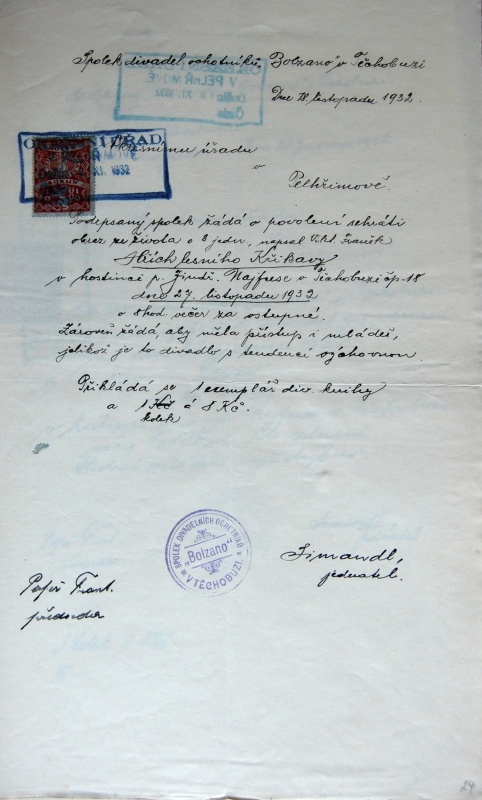 Spolek divadel. ochotníků „Bolzano" v Těchobuzi
Dne 18. listopadu 1932.
V PELHŘIMOVĚ
Došlo XI. 1932
OKRESNÍ ÚŘAD
XI. 1932
Okresnímu úřadu
v
Pelhřimově.
Podepsaný spolek žádá o povolení sehráti
obraz ze života o 3 jedn., napsal Vikt. Braněk
Hřích lesního Křikavy
v hostinci p. Jindř. Najfuse v Těchobuzi čp. 18
dne 27. listopadu 1932
o 8 hod. večer za vstupné.
Zároveň žádá, aby měla přístup i mládež,
jelikož je to divadlo s tendencí výchovnou.
Přikládá se 1 exemplář div. knihy
a 1 Kč á 8 Kč.
kolek
SPOLEK DIVADELNÍCH OCHOTNÍKŮ
„Bolzano"
V TĚCHOBUZI.
Simandl,
jednatel.
Frant.
předseda
24